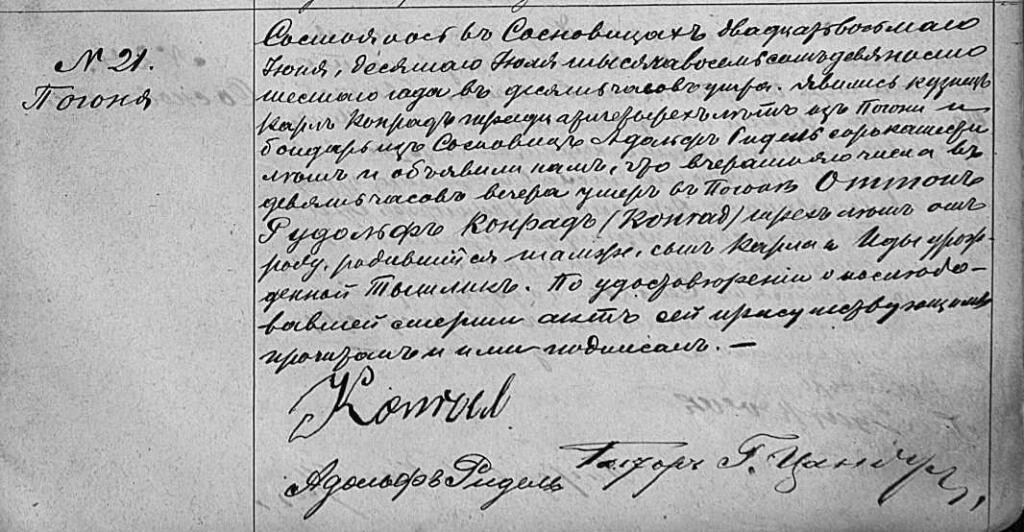 N 21.
Погоня
Состоялось въ Сосновицахъ двадцатьвосьмаго
Іюня, десятаго Іюля тысяча восемьсотъ девяносто
шестаго года въ десять часовъ утра. Явились кузнецъ
Карлъ Конрадъ тридцати четырехъ лѣтъ изъ Погони и
бондарь изъ Сосновицъ Адольфъ Ридель сорока шести
лѣтъ и объявили намъ, что вчерашняго числа въ
девять часовъ вечера умеръ въ Погонѣ Оттонъ
Рудольфъ Конрадъ (Konrad) трехъ лѣтъ отъ
роду, родившійся тамже, сынъ Карла и Иды урож-
денной Тышликъ. По удостовѣреніи о послѣдо-
вавшей смерти актъ сей присутствующимъ
прочитанъ и ими подписанъ. —
Адольфъ Ридель
Пасторъ Г. Цандеръ